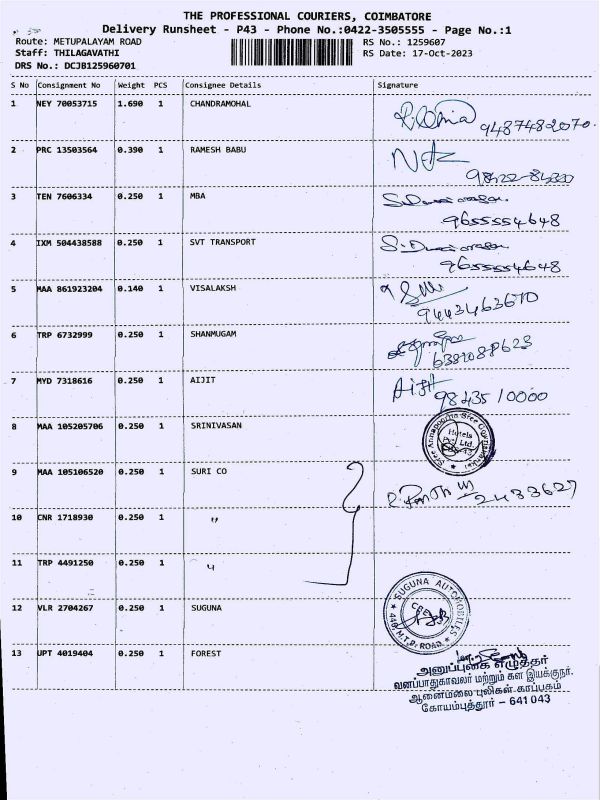 THE PROFESSIONAL COURIERS, COIMBATORE
Delivery Runsheet - P43 - Phone No.:0422-3505555 - Page No.:1
Route: METUPALAYAM ROAD RS No.: 1259607
Staff: THILAGAVATHI RS Date: 17-Oct-2023
DRS No.: DCJB125960701
S No Consignment No Weight PCS Consignee Details Signature
1 NEY 70053715 1.690 1 CHANDRAMOHAL
9487482070.
2 PRC 13503564 0.390 1 RAMESH BABU
3 TEN 7606334 0.250 1 MBA
9655554648
4 IXM 504438588 0.250 1 SVT TRANSPORT
9655554648
5 MAA 861923204 0.140 1 VISALAKSH
9443463670
6 TRP 6732999 0.250 1 SHANMUGAM
7 MYD 7318616 0.250 1 AIJIT Aijit
98435 10000
8 MAA 105205706 0.250 1 SRINIVASAN
Hotels
Pvt. Ltd.
9 MAA 105106520 0.250 1 SURI CO
2433627
10 CNR 1718930 0.250 1 "
11 TRP 4491250 0.250 1 "
SUGUNA AUTOMOBILES
12 VLR 2704267 0.250 1 SUGUNA
M.T.P. ROAD
13 UPT 4019404 0.250 1 FOREST
அனுப்புகை எழுத்தர்
வனப்பாதுகாவலர் மற்றும் கள இயக்குநர்.
ஆனைமலை புலிகள் காப்பகம்
கோயம்புத்தூர் – 641 043